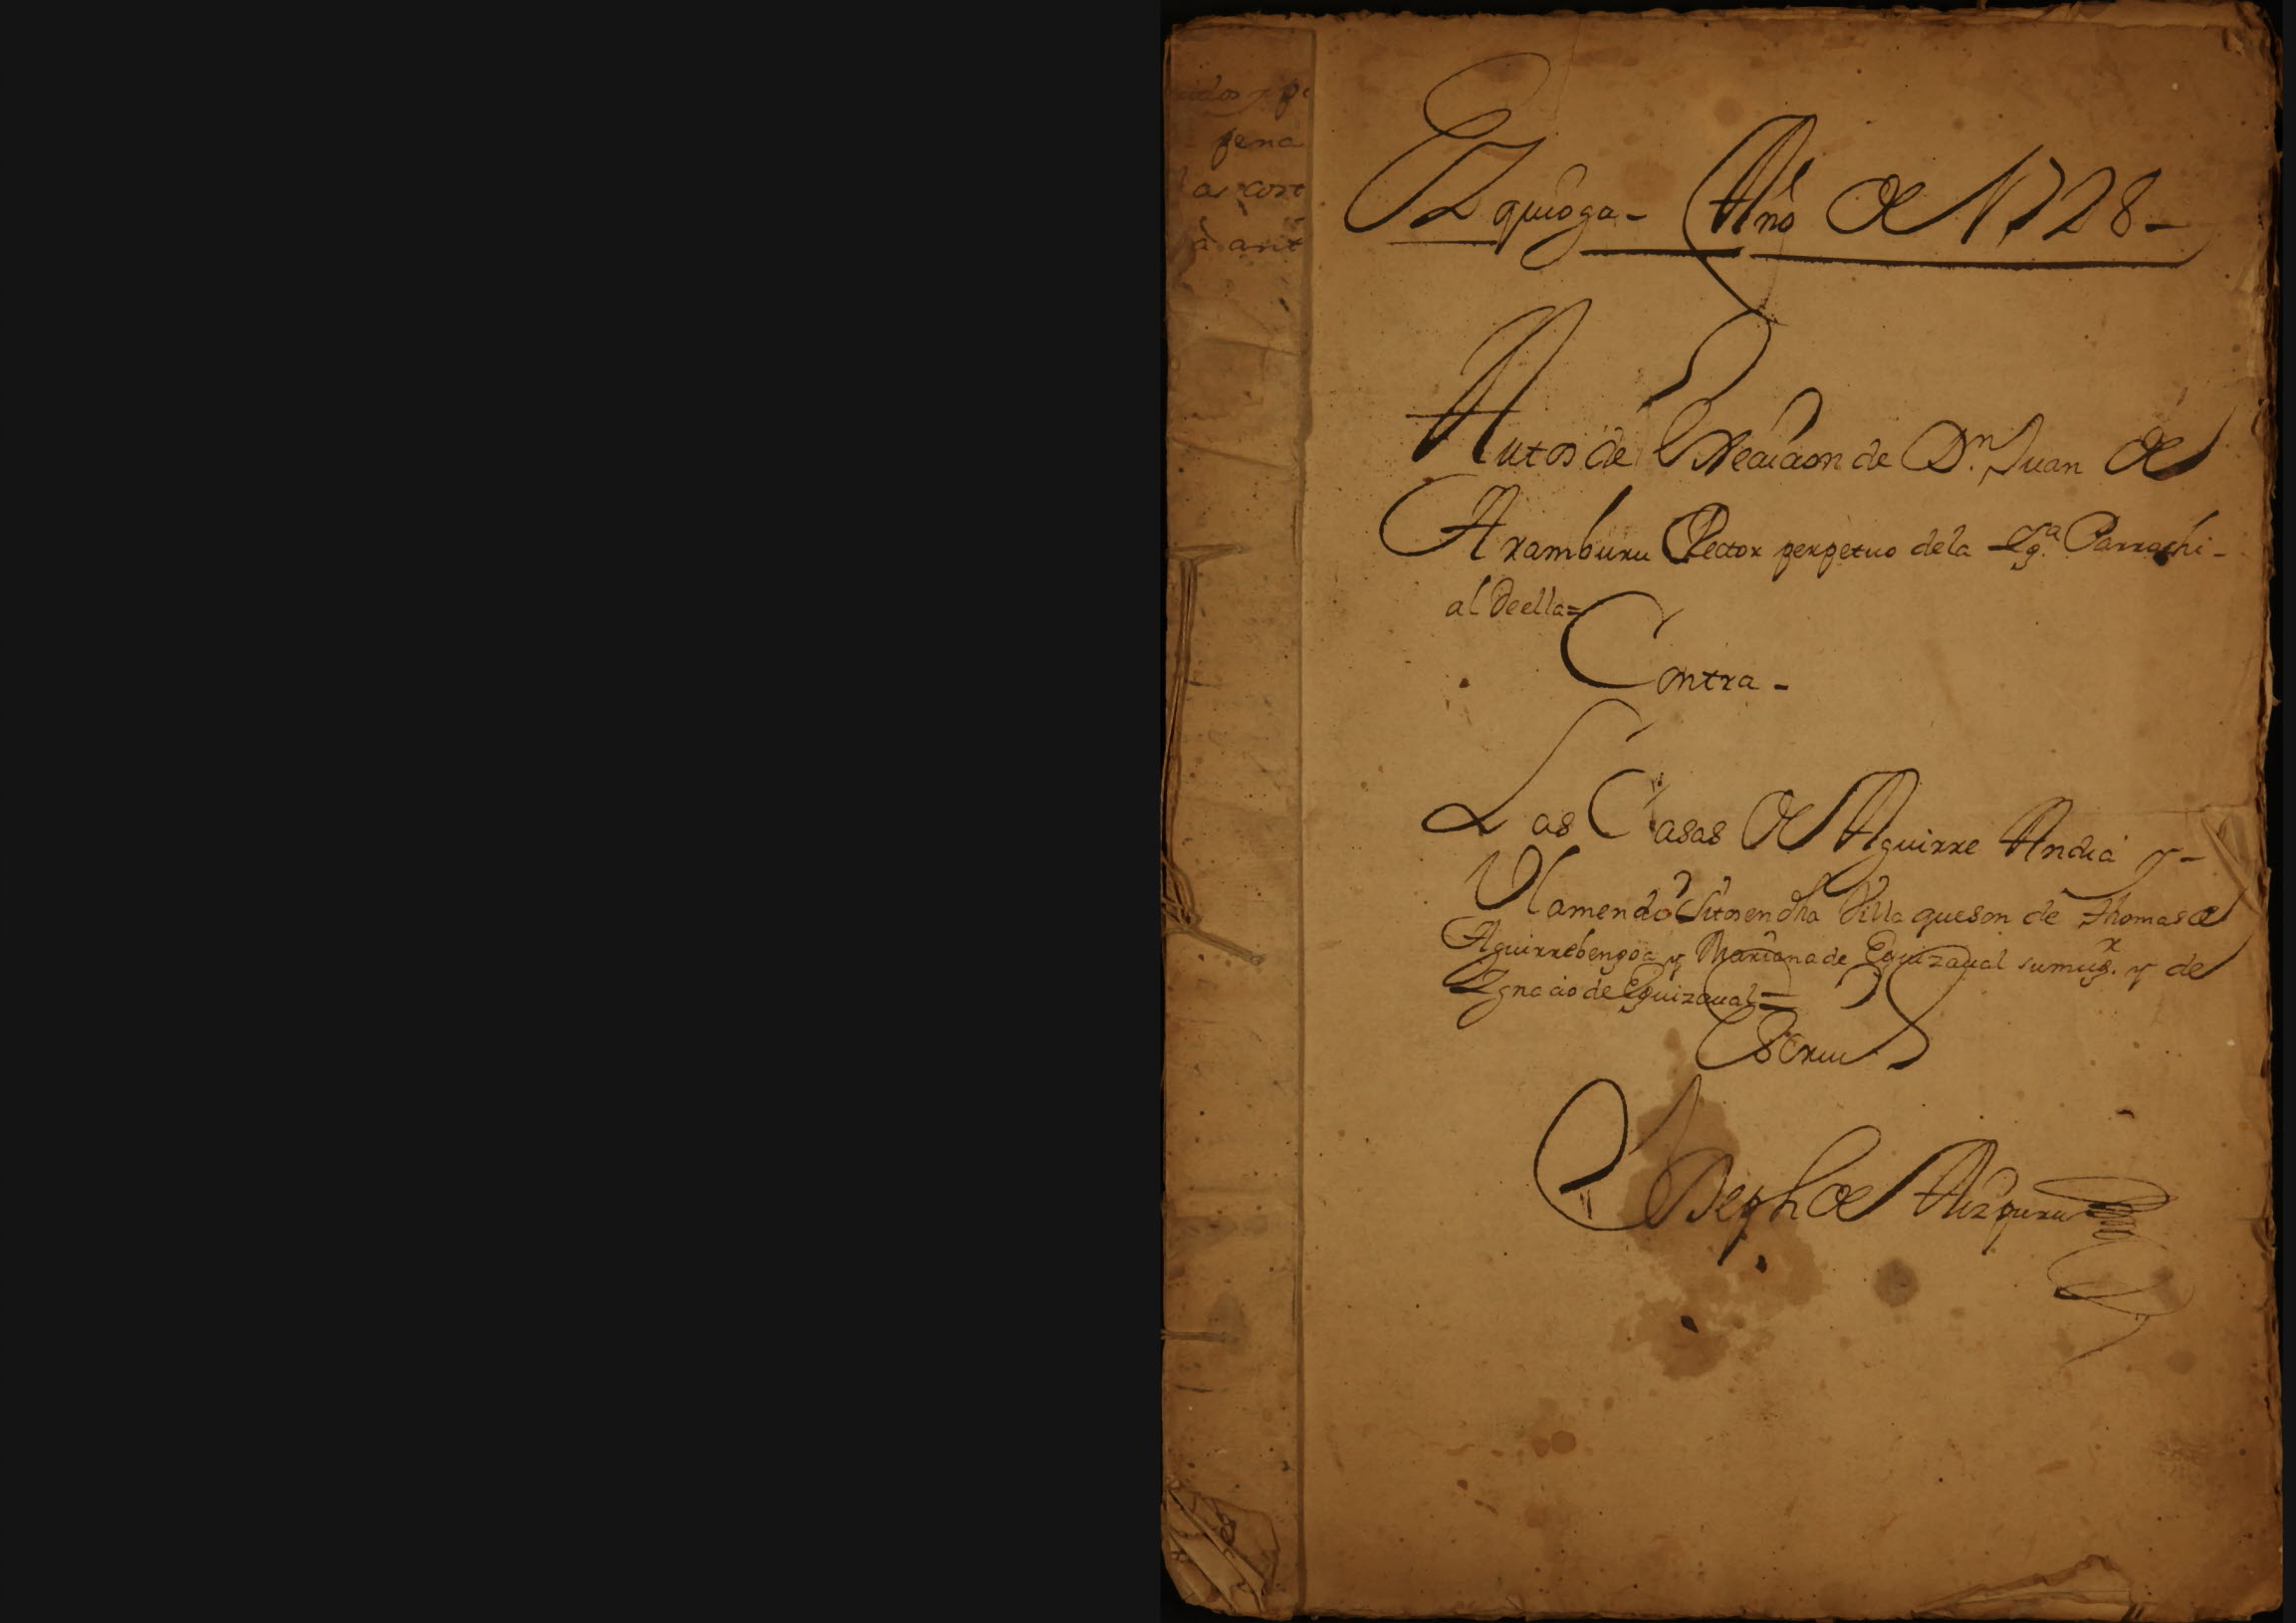 pena
a cort
Ezquioga - Año de 1728 -
Autos de Execucion de Dn. Juan de
Aramburu Rector perpetuo dela Ygª. Parrochi-
al de ella=
Contra -
Las Casas de Aguirre Andia y -
Olamendi Sitos en dha Villa que son de Thomas de
Aguirrebengoa y Mariana de Eguizaual su mugr. y de
Ygnacio de Eguizaual=
Escriu
Joseph de Aizpuru